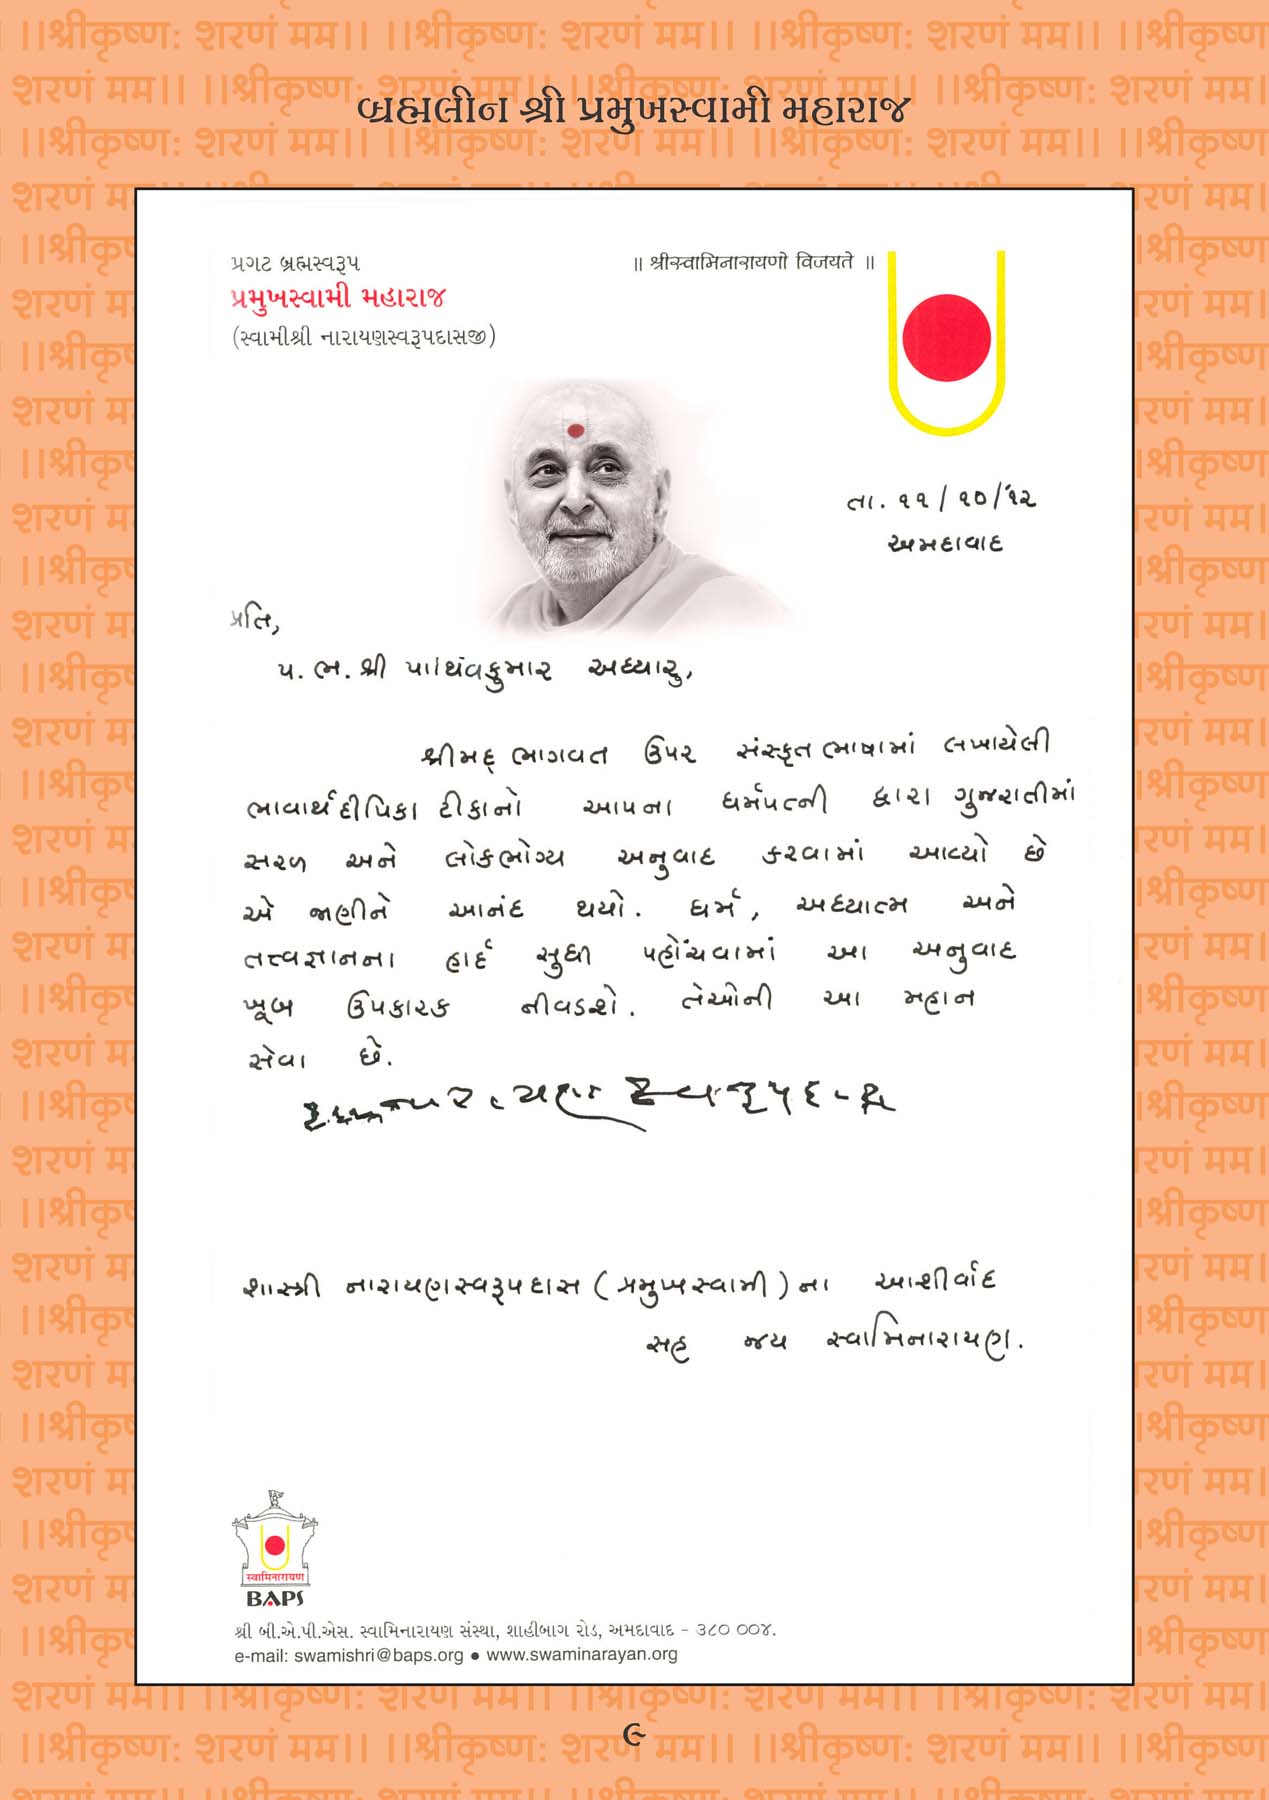 બ્રહ્મલીન શ્રી પ્રમુખસ્વામી મહારાજ
પ્રગટ બ્રહ્મસ્વરૂપ
પ્રમુખસ્વામી મહારાજ
(સ્વામીશ્રી નારાયણસ્વરૂપદાસજી)
॥ શ્રીસ્વામિનારાયણો વિજયતે ॥
તા. ૧૧/૧૦/'૧૨
અમદાવાદ
પ્રતિ,
પ. ભ. શ્રી પાર્થિવકુમાર અધ્યારુ,
શ્રીમદ્ ભાગવત ઉપર સંસ્કૃત ભાષામાં લખાયેલી
ભાવાર્થદીપિકા ટીકાનો આપના ધર્મપત્ની દ્વારા ગુજરાતીમાં
સરળ અને લોકભોગ્ય અનુવાદ કરવામાં આવ્યો છે
એ જાણીને આનંદ થયો. ધર્મ, અધ્યાત્મ અને
તત્ત્વજ્ઞાનના હાર્દ સુધી પહોંચવામાં આ અનુવાદ
ખૂબ ઉપકારક નીવડશે. તેઓની આ મહાન
સેવા છે.
શાસ્ત્રી નારાયણસ્વરૂપદાસ (પ્રમુખસ્વામી) ના આશીર્વાદ
સહ જય સ્વામિનારાયણ.
स्वामिनारायण
BAPS
શ્રી બી.એ.પી.એસ. સ્વામિનારાયણ સંસ્થા, શાહીબાગ રોડ, અમદાવાદ - ૩૮૦ ૦૦૪.
e-mail: swamishri@baps.org ● www.swaminarayan.org
૯